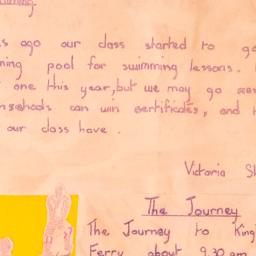 ago our class started to
pool for swimming lessons.
one this year, but we may go
can win certificates, and
our class have.
Victoria
The Journey
The Journey to
Ferry about 9.30 am